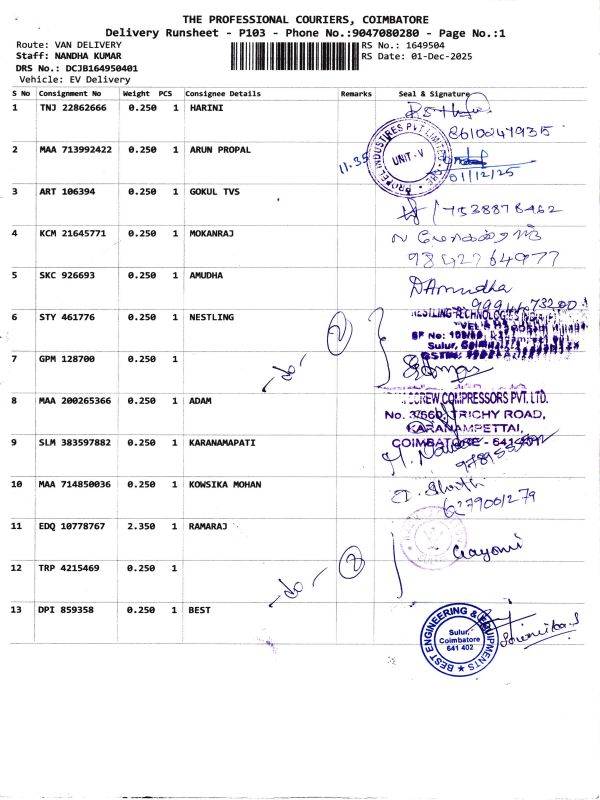 THE PROFESSIONAL COURIERS, COIMBATORE
Delivery Runsheet - P103 - Phone No.:9047080280 - Page No.:1
Route: VAN DELIVERY
Staff: NANDHA KUMAR
DRS No.: DCJB164950401
Vehicle: EV Delivery
RS No.: 1649504
RS Date: 01-Dec-2025
S No Consignment No Weight PCS Consignee Details Remarks Seal & Signature
1 TNJ 22862666 0.250 1 HARINI
8610049315
2 MAA 713992422 0.250 1 ARUN PROPAL 11.35
PROPEL INDUSTRIES PVT LIMITED
UNIT-V
01/12/25
3 ART 106394 0.250 1 GOKUL TVS
7538878462
4 KCM 21645771 0.250 1 MOKANRAJ
9842764977
5 SKC 926693 0.250 1 AMUDHA
D Amudha
6 STY 461776 0.250 1 NESTLING
NESTLING TECHNOLOGIES
Sulur,
7 GPM 128700 0.250 1
-do- 2
8 MAA 200265366 0.250 1 ADAM
SCREW COMPRESSORS PVT. LTD.
TRICHY ROAD,
KARANAMPETTAI,
COIMBATORE - 641
9 SLM 383597882 0.250 1 KARANAMAPATI
10 MAA 714850036 0.250 1 KOWSIKA MOHAN
11 EDQ 10778767 2.350 1 RAMARAJ
Gayomi
12 TRP 4215469 0.250 1
-do- 2
13 DPI 859358 0.250 1 BEST
BEST ENGINEERING & EQUIPMENTS
Sulur,
Coimbatore
641 402